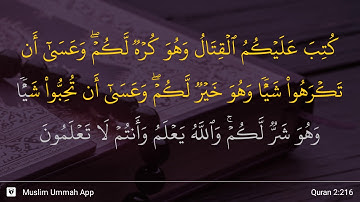 كُتِبَ عَلَيْكُمُ ٱلْقِتَالُ وَهُوَ كُرْهٌ لَّكُمْ ۖ وَعَسَىٰٓ أَن
تَكْرَهُوا۟ شَيْـًٔا وَهُوَ خَيْرٌ لَّكُمْ ۖ وَعَسَىٰٓ أَن تُحِبُّوا۟ شَيْـًٔا
وَهُوَ شَرٌّ لَّكُمْ ۗ وَٱللَّهُ يَعْلَمُ وَأَنتُمْ لَا تَعْلَمُونَ
Muslim Ummah App Quran 2:216